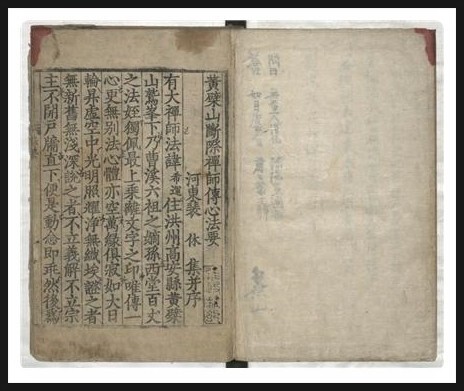 黃檗山斷際禪師傳心法要
河東裴休集并序
有大禪師法諱希運住洪州高安縣黃檗
山鷲峯下乃曹溪六祖之嫡孫西堂百丈
之法姪獨佩最上乘離文字之印唯傳一
心更無別法心體亦空萬緣俱寂如大日
輪昇虛空中光明照耀淨無纖埃證之者
無新舊無淺深說之者不立義解不立宗
主不開戶牖直下便是動念即乖然後爲